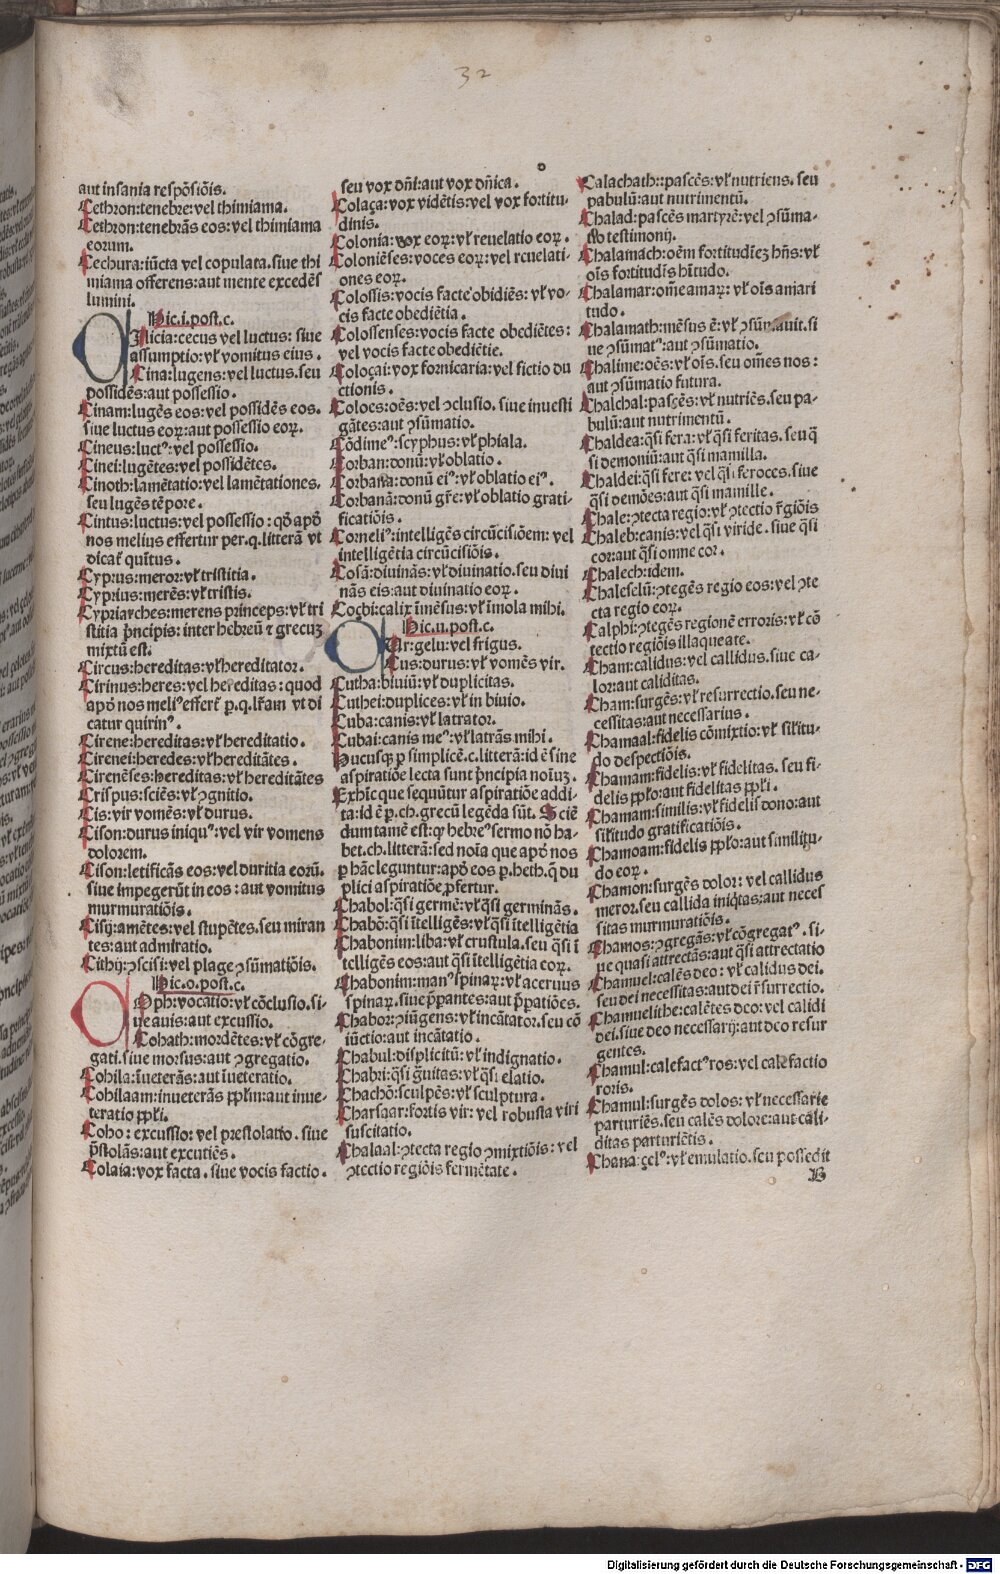 32
aut insania respōsiōis.
Cethron:tenebre:vel thimiama.
Cethron:tenebrās eos:vel thimiama
eorum.
Cechura:iūcta vel copulata.siue thi
miama offerens:aut mente excedēs
lumini.
Hic.i.post.c.
Cilicia:cecus vel luctus: siue
assumptio:vł vomitus eius.
Cina:lugens:vel luctus.seu
possidēs:aut possessio.
Cinam:lugēs eos:vel possidēs eos.
siue luctus eoꝝ:aut possessio eoꝝ.
Cineus:luctꝰ:vel possessio.
Cinei:lugētes:vel possidētes.
Cinoth:lamētatio:vel lamētationes.
seu lugēs tēpore.
Cintus:luctus:vel possessio:qđ apđ
nos melius effertur per.q.litterā vt
dicat̄ quītus.
Cyprus:meror:vł tristitia.
Cyprius:merēs:vł tristis.
Cypriarches:merens princeps:vł tri
stitia p̄ncipis:inter hebreū ⁊ grecuꝫ
mixtū est.
Circus:hereditas:vł hereditator.
Cirinus:heres:vel hereditas:quod
apđ nos meliꝰ effert̄ p̱.q.lr̄am vt di
catur quirinꝰ.
Cirene:hereditas:vł hereditatio.
Cirenei:heredes:vł hereditātes.
Cirenēses:hereditas:vł hereditātes
Crispus:sciēs:vł ꝯgnitio.
Cis:vir vomēs:vł durus.
Cison:durus iniquꝰ:vel vir vomens
dolorem.
Cison:letificās eos:vel duritia eorū.
siue impegerūt in eos:aut vomitus
murmuratiōis.
Cisij:amētes:vel stupētes.seu miran
tes:aut admiratio.
Cithij:ꝯscisi:vel plage ꝯsūmatiōis.
Hic.o.post.c.
Coph:vocatio:vł cōclusio.si-
ue auis:aut excussio.
Cohath:mordētes:vł cōgre-
gati.siue morsus:aut ꝯgregatio.
Cohila:īueterās:aut īueteratio.
Cohilaam:inueterās pp̄lm:aut inue-
teratio pp̄li.
Coho:excussio:vel prestolatio.siue
p̄stolās:aut excutiēs.
Colaia:vox facta.siue vocis factio.
seu vox dn̄i:aut vox dn̄ica.
Colaça:vox vidētis:vel vox fortitu-
dinis.
Colonia:vox eoꝝ:vł reuelatio eoꝝ.
Coloniēses:voces eoꝝ:vel reuelati-
ones eoꝝ.
Colossis:vocis facte obidiēs:vł vo-
cis facte obediētia.
Colossenses:vocis facte obediētes:
vel vocis facte obediētie.
Coloçai:vox fornicaria:vel fictio du
ctionis.
Coloes:oēs:vel ꝯclusio.siue inuesti
gātes:aut ꝯsūmatio.
Cōdimeꝰ:scyphus:vł phiala.
Corban:donū:vł oblatio.
Corbana:donū eiꝰ:vł oblatio eiꝰ.
Corbanā:donū gr̄e:vł oblatio grati-
ficatiōis.
Corneliꝰ:intelligēs circūcisiōem:vel
intelligētia circūcisiōis.
Cosā:diuināns:vł diuinatio.seu diui
nās eis:aut diuinatio eoꝝ.
Coçbi:calix īmēsus:vł īmola mihi.
Hic.u.post.c.
Cur:gelu:vel frigus.
Cus:durus:vł vomēs vir.
Cutha:biuiū:vł duplicitas.
Cuthei:duplices:vł in biuio.
Cuba:canis:vł latrator.
Cubai:canis meꝰ:vł latrās.mihi.
Hucusqꝫ p̱ simplicē.c.litterā:id ē sine
aspiratiōe lecta sunt p̄ncipia noīuꝫ.
Exhīc que sequūtur aspiratiōe addi-
ta:id ē p̱.ch.grecū legēda sūt. Sciē
dum tamē est:qꝫ hebreꝰ sermo nō ha-
bet.ch.litterā:sed noīa que apđ nos
p̱ hāc leguntur:apđ eos p̱.heth.q̄ du
plici aspiratiōe ꝓfertur.
Chabol:q̄si germē:vł q̄si germinās.
Chabō:q̄si ītelligēs:vł q̄si ītelligētia
Chabonim:liba:vł crustula.seu q̄si ī
telligēs eos:aut q̄si ītelligētia eoꝝ.
Chabonim:manꝰ spinaꝝ:vł aceruus
spinaꝝ.siue p̄parātes:aut p̄patiōes.
Chabor:ꝯiūgens:vł incātator.seu cō
iūctio:aut incātatio.
Chabul:displicitū:vł indignatio.
Chabri:q̄si ḡuitas:vł q̄si elatio.
Chachō:sculpēs:vł sculptura.
Charsaar:fortis vir:vel robusta viri
suscitatio.
Chalaal:ꝯtecta regio ꝯmixtiōis:vel
ꝯtectio regiōis fermētate.
Calachath:pascēs:vł nutriens.seu
pabulū:aut nutrimentū.
Chalad:pascēs martyrē:vel ꝯsūma-
tio testimonij.
Chalamach:oēm fortitudīeꝫ hn̄s:vł
oīs fortitudīs hītudo.
Chalamar:om̄e amaꝝ:vł oīs amari
tudo.
Chalamath:mēsus ē:vł ꝯsūmauit.si
ue ꝯsūmatꝰ:aut ꝯsūmatio.
Chalime:oēs:vł oīs.seu om̄es nos:
aut ꝯsūmatio futura.
Chalchal:pascēs:vł nutriēs.seu pa-
bulū:aut nutrimentū.
Chaldea:q̄si fera:vł q̄si feritas.seu q̄
si demoniū:aut q̄si mamilla.
Chaldei:q̄si fere:vel q̄si feroces.siue
q̄si demōes:aut q̄si mamille.
Chale:ꝯtecta regio:vł ꝯtectio r̄giōis
Chaleb:canis:vel q̄si viride.siue q̄si
cor:aut q̄si omne cor.
Chalech:idem.
Chaleselū:ꝯtegēs regio eos:vel ꝯte
cta regio eoꝝ.
Calphi:ꝯtegēs regionē erroris:vł cō
tectio regiōis illaqueate.
Cham:calidus:vel callidus.siue ca-
lor:aut caliditas.
Cham:surgēs:vł resurrectio.seu ne-
cessitas:aut necessarius.
Chamaal:fidelis cōmixtio:vł sil̄itu-
do despectiōis.
Chamam:fidelis:vł fidelitas.seu fi-
delis pp̄lo:aut fidelitas pp̄li.
Chamam:similis:vł fidelis dono:aut
sil̄itudo gratificatiōis.
Chamoam:fidelis pp̄lo:aut similitu-
do eoꝝ.
Chamon:surgēs dolor:vel callidus
meror.seu callida iniq̄tas:aut neces
sitas murmuratiōis.
Chamos:ꝯgregās:vł cōgregatꝰ.si-
ue quasi attrectās:aut q̄si attrectatio
Chamuel:calēs deo:vł calidus dei.
seu dei necessitas:aut dei r̄surrectio.
Chamuelithe:calētes deo:vel calidi
dei.siue deo necessarij:aut deo resur
gentes.
Chamul:calefactꝰ ros:vel calefactio
roris.
Chamul:surgēs dolos:vł necessarie
parturiēs.seu calēs dolore:aut cali-
ditas parturiētis.
Chana:çelꝰ:vł emulatio.seu possedit
B
Digitalisierung gefördert durch die Deutsche Forschungsgemeinschaft - DFG